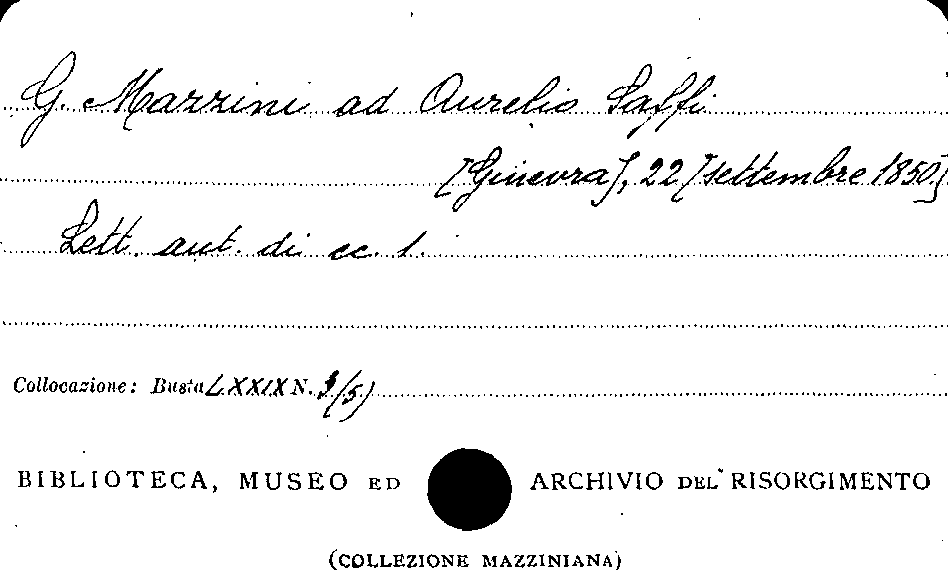 G. Mazzini ad Aurelio Saffi
[Ginevra], 22 [settembre 1850]
Lett. aut. di cc. 1.
Collocazione: Busta LXXIX N. 3/5)
BIBLIOTECA, MUSEO ED ARCHIVIO DEL RISORGIMENTO
(COLLEZIONE MAZZINIANA)